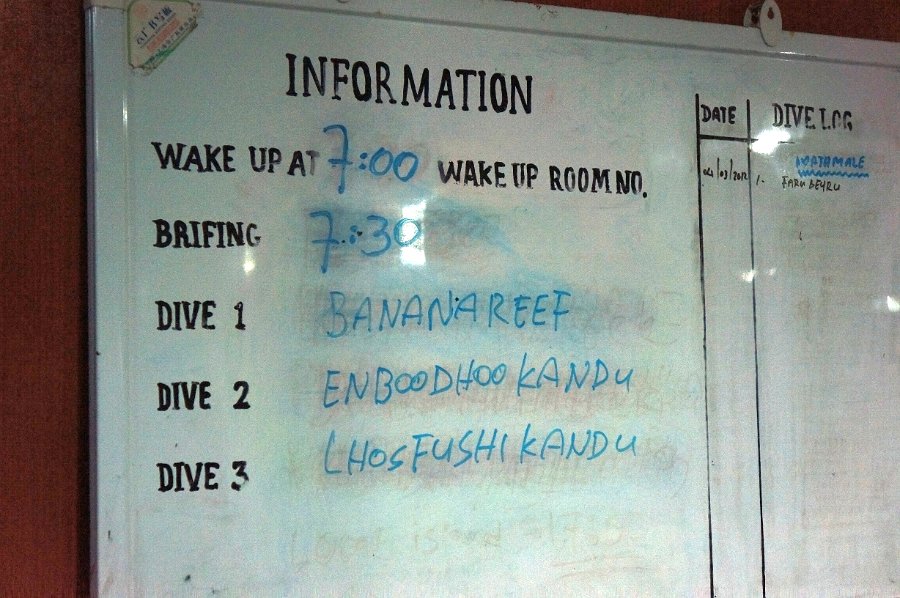 INFORMATION
WAKE UP AT 7:00 WAKE UP ROOM NO.
BRIFING 7:30
DIVE 1 BANANA REEF
DIVE 2 ENBOODHOO KANDU
DIVE 3 LHOSFUSHI KANDU
DATE DIVE LOG
NORTH MALE
1. FARU BEYRU